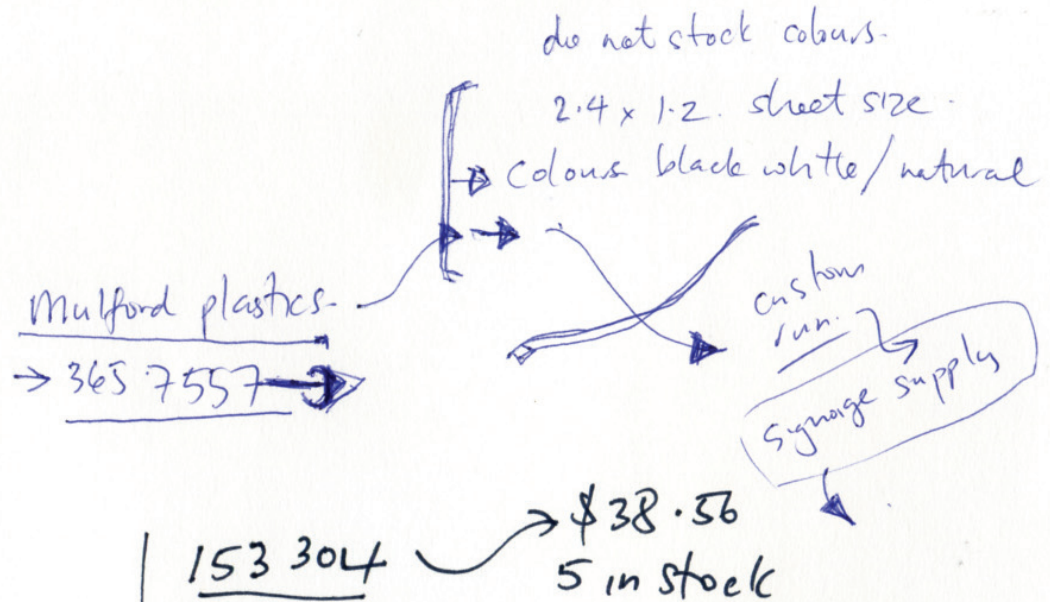 do not stock colours.
2.4 x 1.2. sheet size.
colours black white/natural
Mulford plastics.
365 7557
custom
run.
signage supply
153 304
$38.56
5 in stock